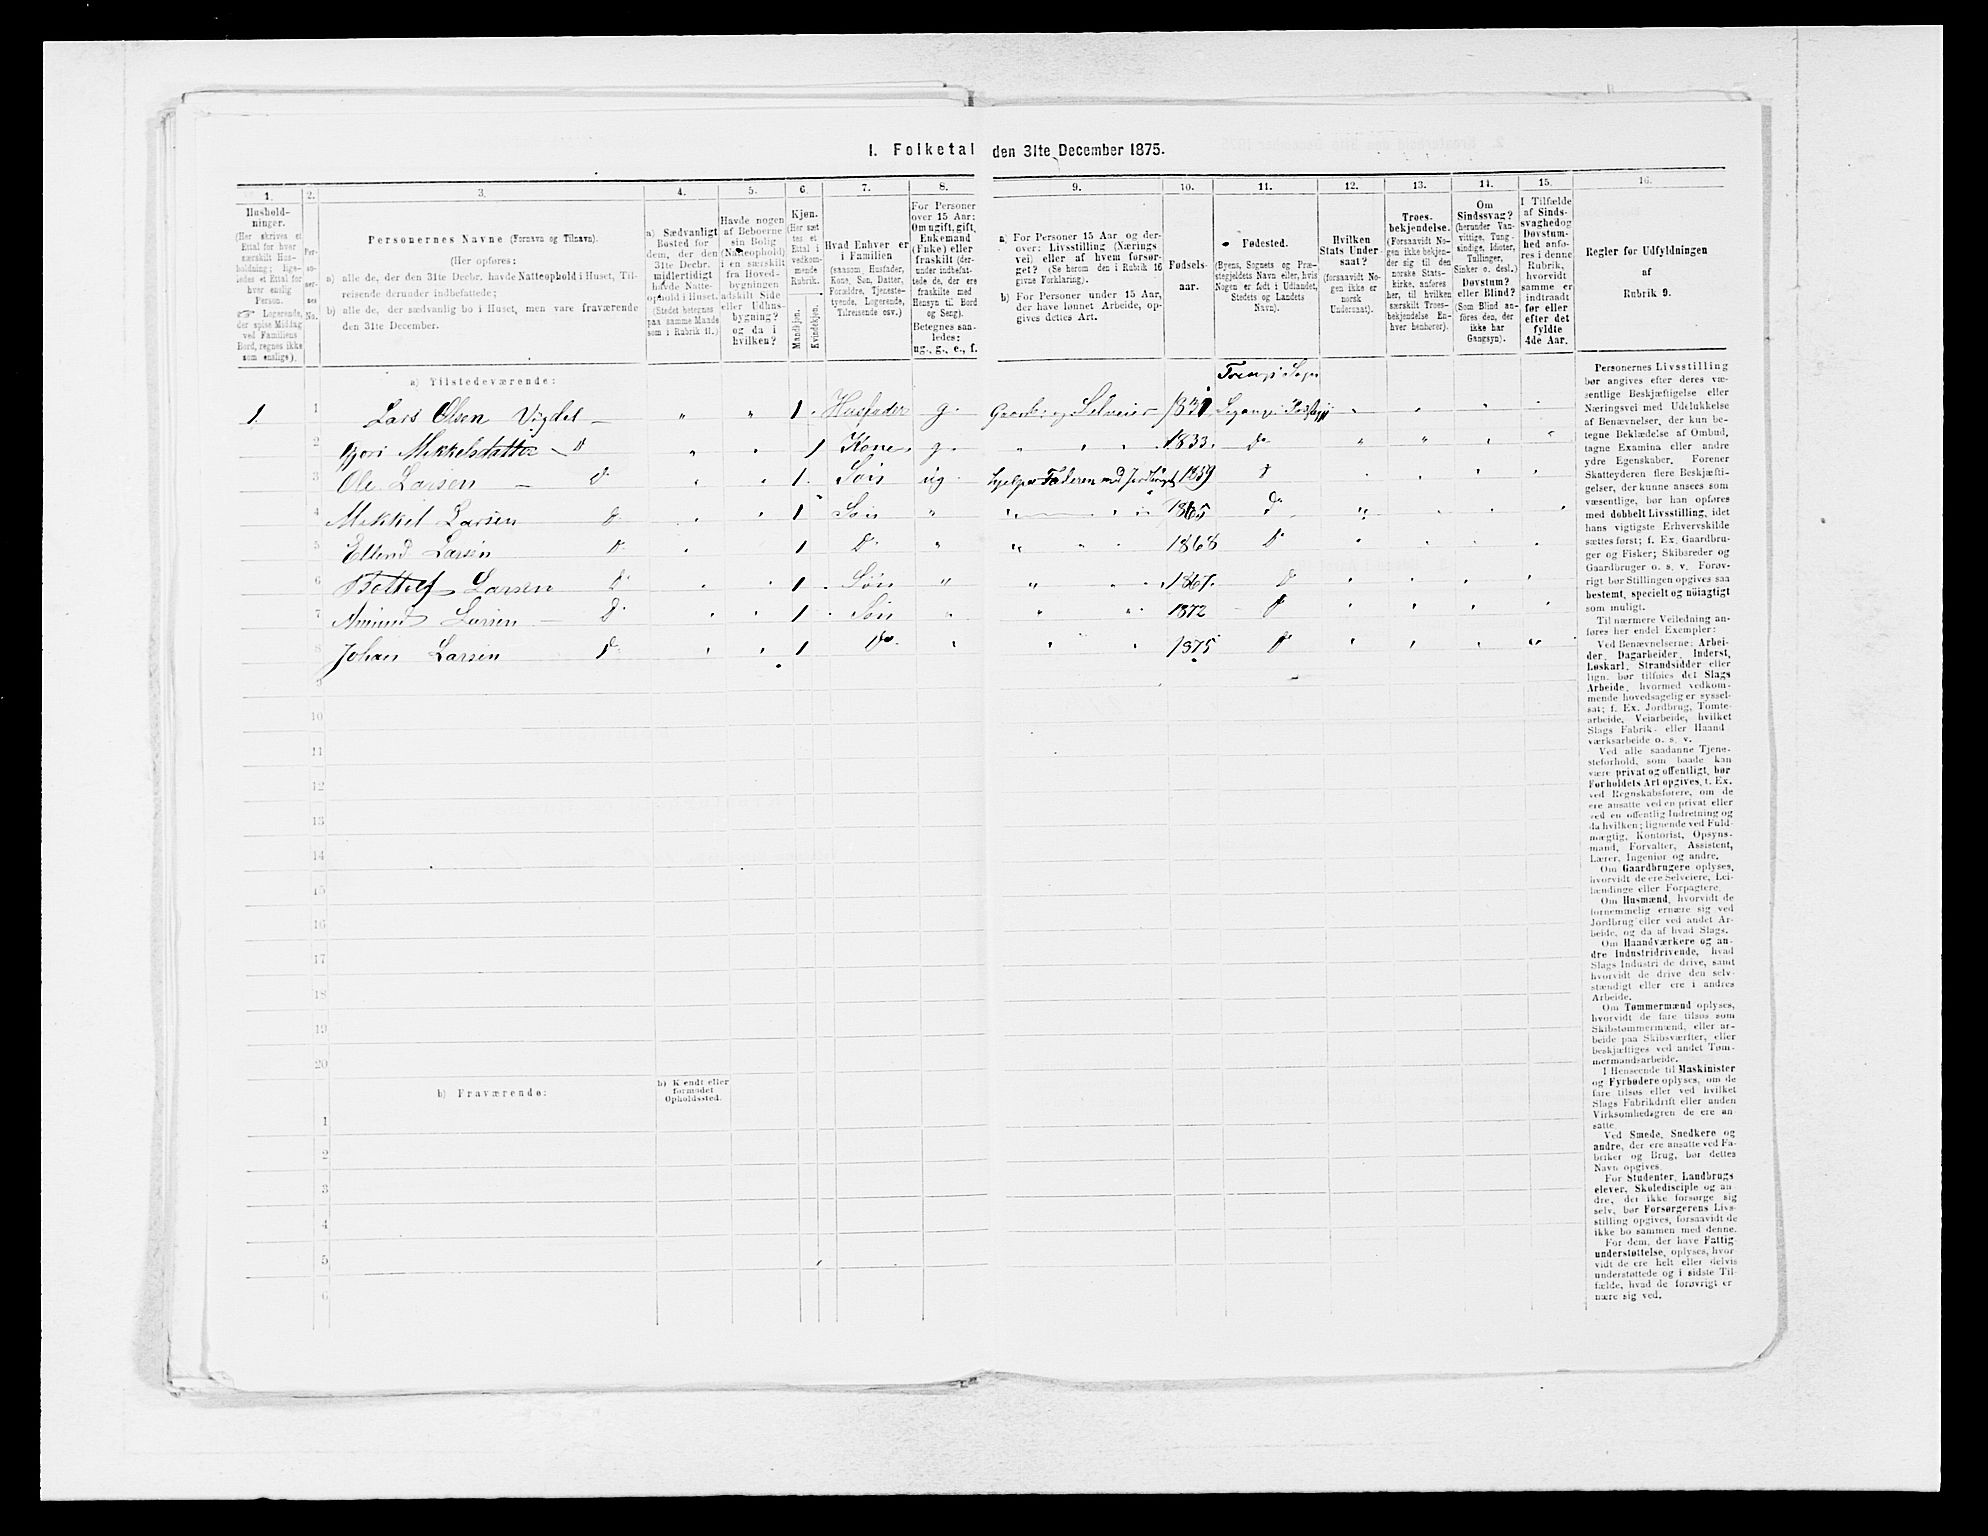 I. Folketal den 31te December 1875.
1. 2. 3. 4. 5. 6. 7. 8. 9. 10. 11. 12. 13. 14. 15. 16.
Hushold-
ninger.
(Her skrives et
Ettal for hver
særskilt Hus-
holdning; lige-
ledes et Ettal for
hver enslig
Person.
☞ Logerende,
der spise Middag
ved Familiens
Bord, regnes ikke
som enslige).
Per-
so-
ner-
nes
No.
Personernes Navne (Fornavn og Tilnavn).
(Her opføres:
a) alle de, der den 31te Decbr. havde Natteophold i Huset, Til-
reisende derunder indbefattede;
b) alle de, der sædvanlig bo i Huset, men vare fraværende
den 31te December.
a) Sædvanligt
Bosted for
dem, der den
31te Decbr.
midlertidigt
havde Natte-
ophold i Huset.
(Stedet betegnes
paa samme Maade
som i Rubrik 11.)
Havde nogen
af Beboerne
sin Bolig
(Natteophold)
i en særskilt
fra Hoved-
bygningen
adskilt Side
eller Udhus-
bygning?
og da i
hvilken?
Kjøn.
(Her sæt-
tes et
Ettal i
vedkom-
mende
Rubrik.
Mandkjøn.
Kvindekjøn.
Hvad Enhver er
i Familien
(saasom Husfader,
Kone, Søn, Datter,
Forældre, Tjeneste-
tyende, Logerende,
Tilreisende osv.)
For Personer
over 15 Aar:
Om ugift, gift,
Enkemand
(Enke) eller
fraskilt (der-
under indbefat-
tede de, der ere
fraskilte med
Hensyn til Bord
og Seng).
Betegnes saa-
ledes:
ug., g., e., f.
a) For Personer 15 Aar og der-
over: Livsstilling (Nærings
vei) eller af hvem forsør-
get? (Se herom den i Rubrik 16
givne Forklaring).
b) For Personer under 15 Aar,
der have lønnet Arbeide, op-
gives dettes Art.
Fødsels-
aar.
Fødested.
(Byens, Sognets og Præ-
stegjeldets Navn eller, hvis
Nogen er født i Udlandet,
Stedets og Landets
Navn).
Hvilken
Stats Under-
saat?
(forsaavidt No-
gen ikke er
norsk
Undersaat).
Troes-
bekjendelse.
(Forsaavidt No-
gen ikke bekjen-
der sig til den
norske Stats-
kirke, anføres
her, til hvilken
særskilt Troes-
bekjendelse En-
hver henhører).
Om
Sindssvag?
(herunder Van-
vittige, Tung-
sindige, Idioter,
Tullinger,
Sinker o. desl.)
Døvstum?
eller Blind?
(Som Blind an-
føres den, der
ikke har
Gangsyn).
I Tilfælde
af Sinds-
svaghed og
Døvstum-
hed anfø-
res i denne
Rubrik,
hvorvidt
samme er
indtraadt
før eller
efter det
fyldte
4de Aar.
Regler for Udfyldningen
af
Rubrik 9.
a) Tilstedeværende:
1. 1 Lars Olsen Vigdal — " " 1 Husfader g. Gaardbr. og Selveier 1831
2 Mikkelsdatter — Do 1 Kone g. " " " 1833. Do
3 Ole Larsen — Do 1. Søn ug. Faderen med 1859 Do
4 Mikkel Larsen Do 1 Søn " 1865 Do
5 Larsen Do 1 Do " " " " 1868 Do
6 Larsen Do 1 Søn " " 1867. Do
7 Larsen — Do 1 Søn " " 1872 — Do
8 Johan Larsen Do 1 Do " " " 1875 Do
9
10
11
12
13
14
15
16
17
18
19
20
b) Fraværende:
b) Kjendt eller
formodet
Opholdssted.
1
2
3
4
5
6
Personernes Livsstilling
bør angives efter deres væ-
sentlige Beskjæftigelse eller
Næringsvei med Udelukkelse
af Benævnelser, der kun be-
tegne Beklædelse af Ombud,
tagne Examina eller andre
ydre Egenskaber. Forener
Skatteyderen flere Beskjæfti-
gelser, der kunne ansees som
væsentlige, bør han opføres
med dobbelt Livsstilling, idet
hans vigtigste Erhvervskilde
sættes først; f. Ex. Gaardbru-
ger og Fisker; Skibsreder og
Gaardbruger o. s. v. Forøv-
rigt bør Stillingen opgives saa
bestemt, specielt og nøiagtigt
som muligt.
Til nærmere Veiledning an-
føres her endel Exempler:
Ved Benævnelserne: Arbei-
der, Dagarbeider, Inderst,
Løskarl, Strandsidder eller
lign. bør tilføies det Slags
Arbeide, hvormed vedkom-
mende hovedsagelig er syssel-
sat; f. Ex. Jordbrug, Tomte-
arbeide, Veiarbeide, hvilket
Slags Fabrik- eller Haand-
værksarbeide o. s. v.
Ved alle saadanne Tjene-
steforhold, som baade kan
være privat og offentligt, bør
Forholdets Art opgives, f. Ex.
ved Regnskabsførere, om de
ere ansatte ved en privat eller
ved en offentlig Indretning og
da hvilken; lignende ved Fuld-
mægtig, Kontorist, Opsyns-
mand, Forvalter, Assistent,
Lærer, Ingeniør og andre.
Om Gaardbrugere oplyses,
hvorvidt de ere Selveiere, Lei-
lændinge eller Forpagtere.
Om Husmænd, hvorvidt de
fornemmelig ernære sig ved
Jordbrug eller ved andet Ar-
beide, og da af hvad Slags.
Om Haandværkere og an-
dre Industridrivende, hvad
Slags Industri de drive, samt
hvorvidt de drive den selv-
stændigt eller ere i andres
Arbeide.
Om Tømmermænd oplyses,
hvorvidt de fare tilsøs som
Skibstømmermænd, eller ar-
beide paa Skibsværfter, eller
beskjæftiges ved andet Tøm-
mermandsarbeide.
I Henseende til Maskinister
og Fyrbødere oplyses, om de
fare tilsøs eller ved hvilket
Slags Fabrikdrift eller anden
Virksomhedsgren de ere an-
satte.
Ved Smede, Snedkere og
andre, der ere ansatte ved Fa-
briker og Brug, bør dettes
Navn opgives.
For Studenter, Landbrugs
elever, Skoledisciple og an-
dre, der ikke forsørge sig
selv, bør Forsørgerens Livs-
stilling opgives, forsaavidt de
ikke bo sammen med denne.
For dem, der have Fattig-
understøttelse, oplyses, hvor-
vidt de ere helt eller delvis
understøttede og i sidste Til-
fælde, hvad de forøvrigt er
nære sig ved.